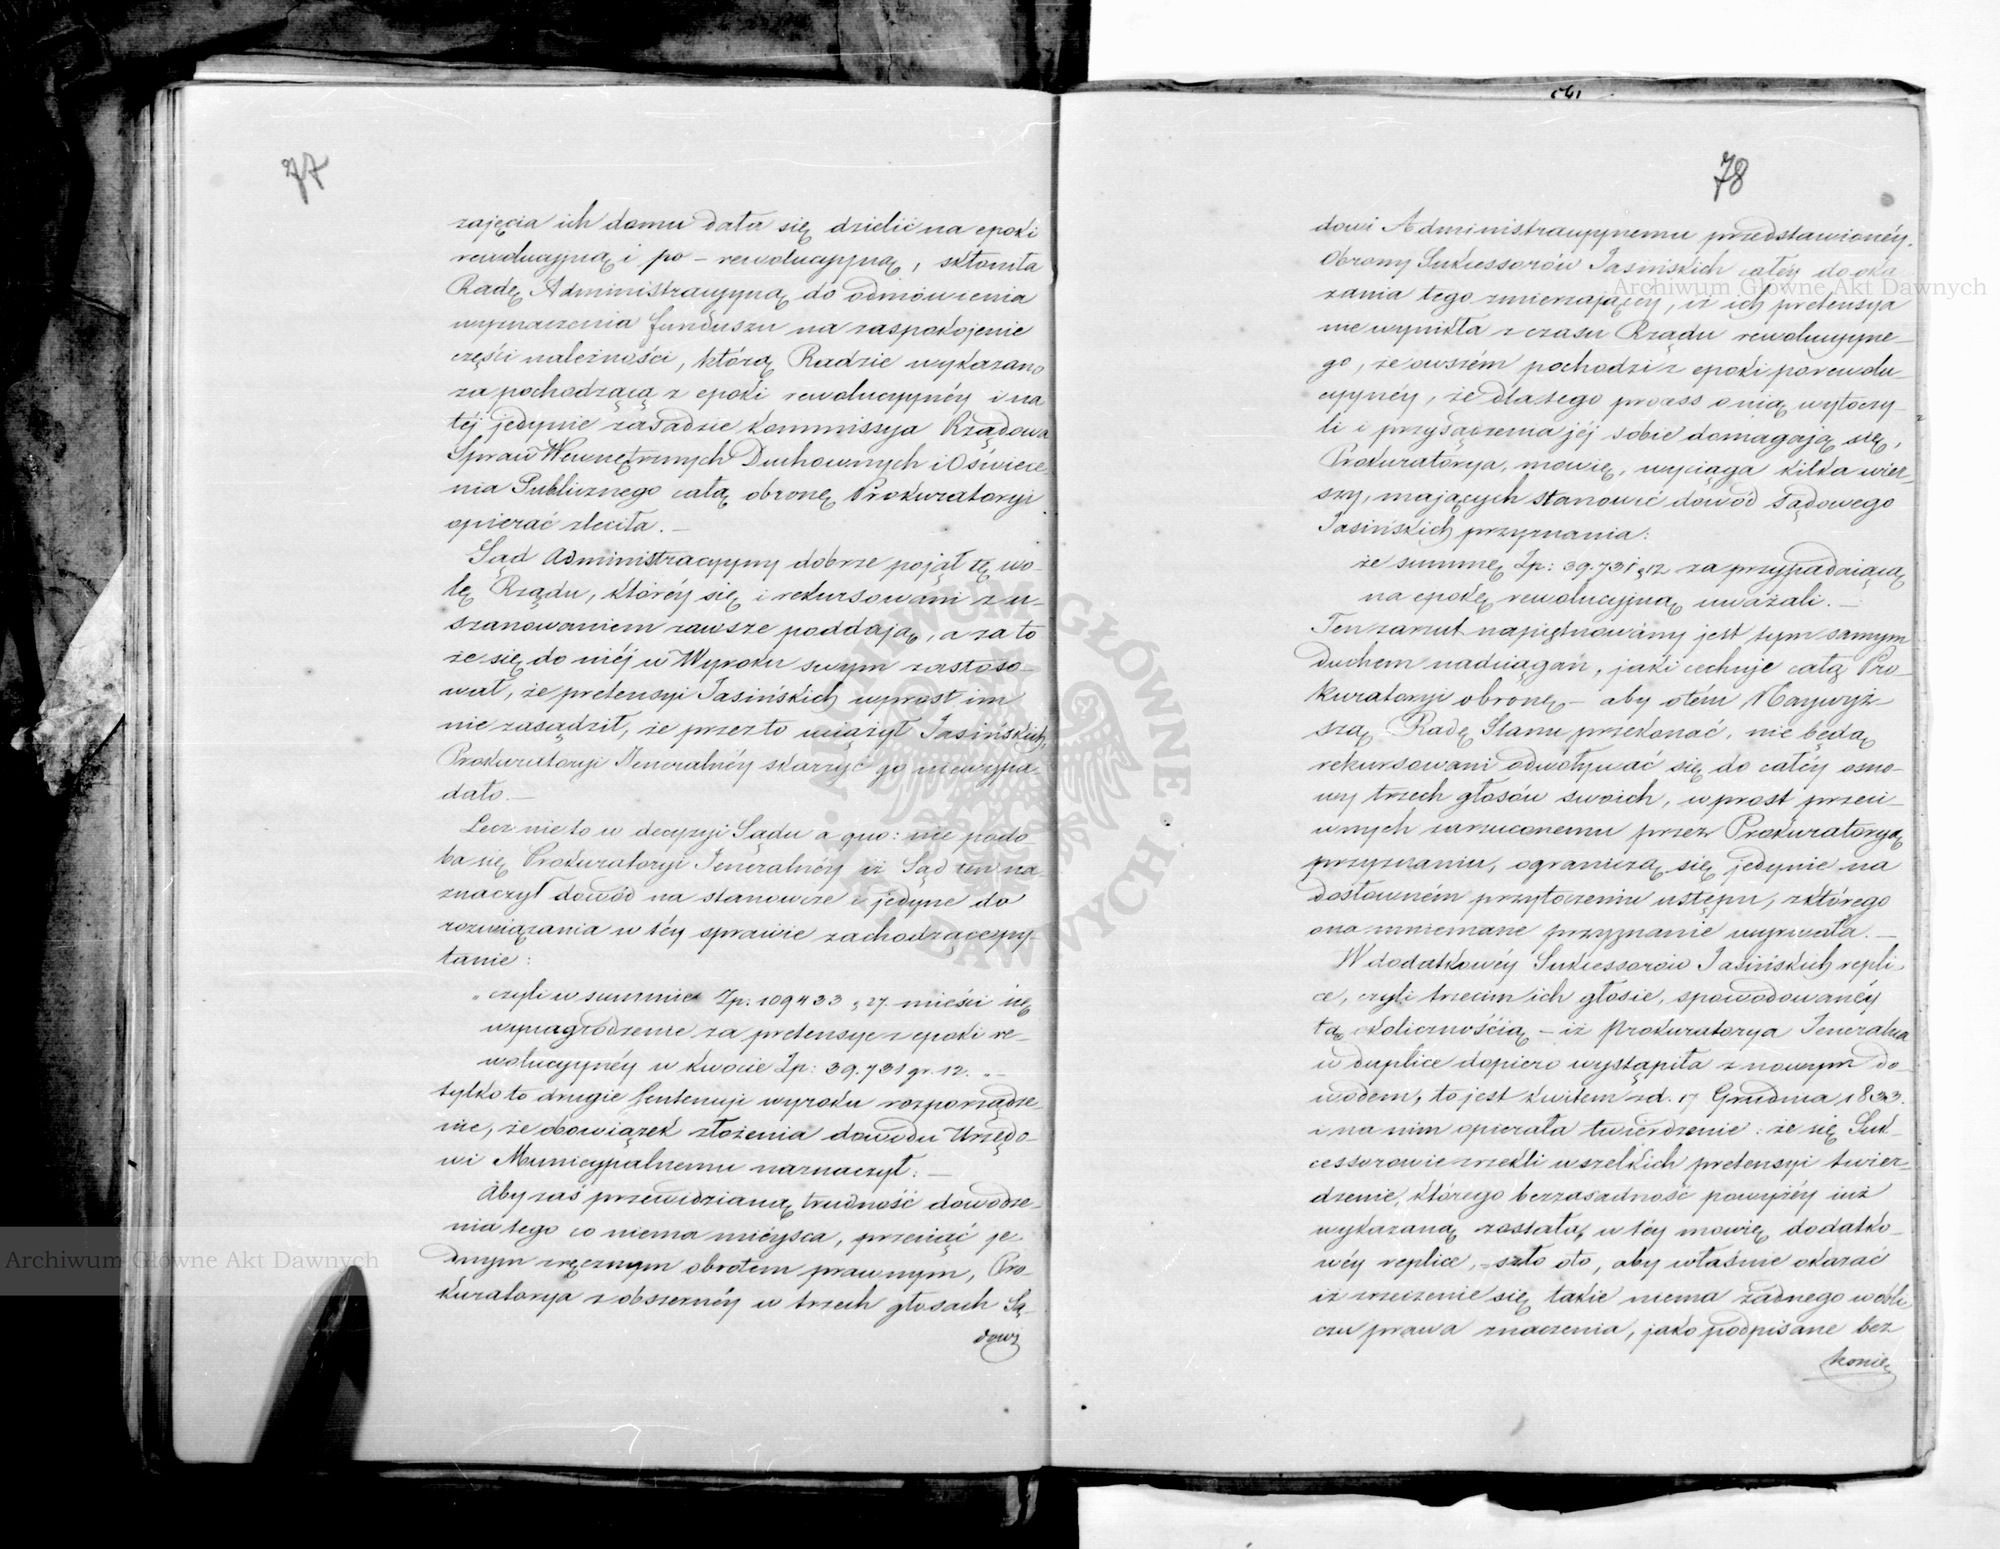 77
zajęcia ich domu dała się dzielić na epoki
rewolucyjną i po-rewolucyjną, skłoniła
Radę Administracyjną do odmówienia
wyznaczenia funduszu na zaspokojenie
części należności, którą Radzie wykazano
za pochodzącą z epoki rewolucyjnéy i na
téj jedynie zasadzie Kommissya Rządowa
Spraw Wewnętrznych Duchownych i Oświece-
nia Publicznego całą obronę Prokuratoryi
opierać zleciła. –
Sąd Administracyjny dobrze pojął tę wo-
lę Rządu, któréy się i rekursowani z u-
szanowaniem zawsze poddają, a za to
że się do niéj w Wyroku swym zastoso-
wał, że pretensyi Jasińskich wprost im
nie zasądził, że przez to uciążył Jasińskich,
Prokuratoryi Jeneralnéy skarżyć go niewypa-
dało. –
Lecz nie to w decyzyi Sądu a quo: nie podo-
ba się Prokuratoryi Jeneralnéy iż Sąd ten na-
znaczył dowód na stanowcze i jedyne do
rozwiązania w téy sprawie zachodzące py-
tanie:
„czyli w summie Zp: 109433 „ 27. mieści się
wynagrodzenie za pretensye z epoki re-
wolucyjnéy w kwocie Zp: 39.731 gr. 12. „ –
tylko to drugie Sentencyi wyroku rozporządze-
nie, że obowiązek złożenia dowodu Urzędo-
wi Municypalnemu naznaczył: –
Aby zaś przewidzianą trudność dowodze-
nia tego co niema miéysca, przeciąć je-
dnym zręcznym obrotem prawnym, Pro-
kuratorya z obszernéy w trzech głosach Są-
dowi
78
dowi Administracyjnemu przedstawionéy.
Obrony Sukcessorów Jasińskich całéy do oka
zania tego zmierzającéy, iż ich pretensya
nie wynikła z czasu Rządu rewolucyjne-
go, że owszém pochodzi z epoki porewolu-
cyjnéy, że dla tego process o nią wytoczy-
li i przysądzenia jéj sobie domagają się,
Prokuratorya, mowię, wyciąga kilka wier-
szy, mających stanowić dowód sądowego
Jasińskich przyznania:
że summę Zp: 39.731 „ 12 za przypadającą
na epokę rewolucyjną uważali. –
Ten zarzut napiętnowany jest tym samym
duchem nadciągań, jaki cechuje całą Pro-
kuratoryi obronę – aby o tém Naywyż-
szą Radę Stanu przekonać, nie będą
rekursowani odwoływać się do całéy osno-
wy trzech głosów swoich, wprost przeci-
wnych zarzuconemu przez Prokuratoryą
przyznaniu, ograniczą się jedynie na
dosłowném przytoczeniu ustępu, z którego
ono mniemane przyznanie wyrwała. –
W dodatkowéy Sukcessorów Jasińskich repli-
ce, czyli trzecim ich głosie, spowodowanéy
tą okolicznością – iż Prokuratorya Jeneralna
w duplice dopiero wystąpiła z nowym do-
wodem, to jest kwitem z d. 17 Grudnia 1833.
i na nim opierała twierdzenie: że się Suk-
cessorowie zrzekli wszelkich pretensyi twier-
dzenie, którego bezzasadność powyżéy już
wykazaną została, w téy mowię dodatko-
wéy replice, szło oto, aby właśnie okazać
iż zrzeczenie się takie niema żadnego w obli-
czu prawa znaczenia, jako podpisane bez
konie-
Archiwum Główne Akt Dawnych
Archiwum Główne Akt Dawnych
ARCHIWUM GŁÓWNE AKT DAWNYCH